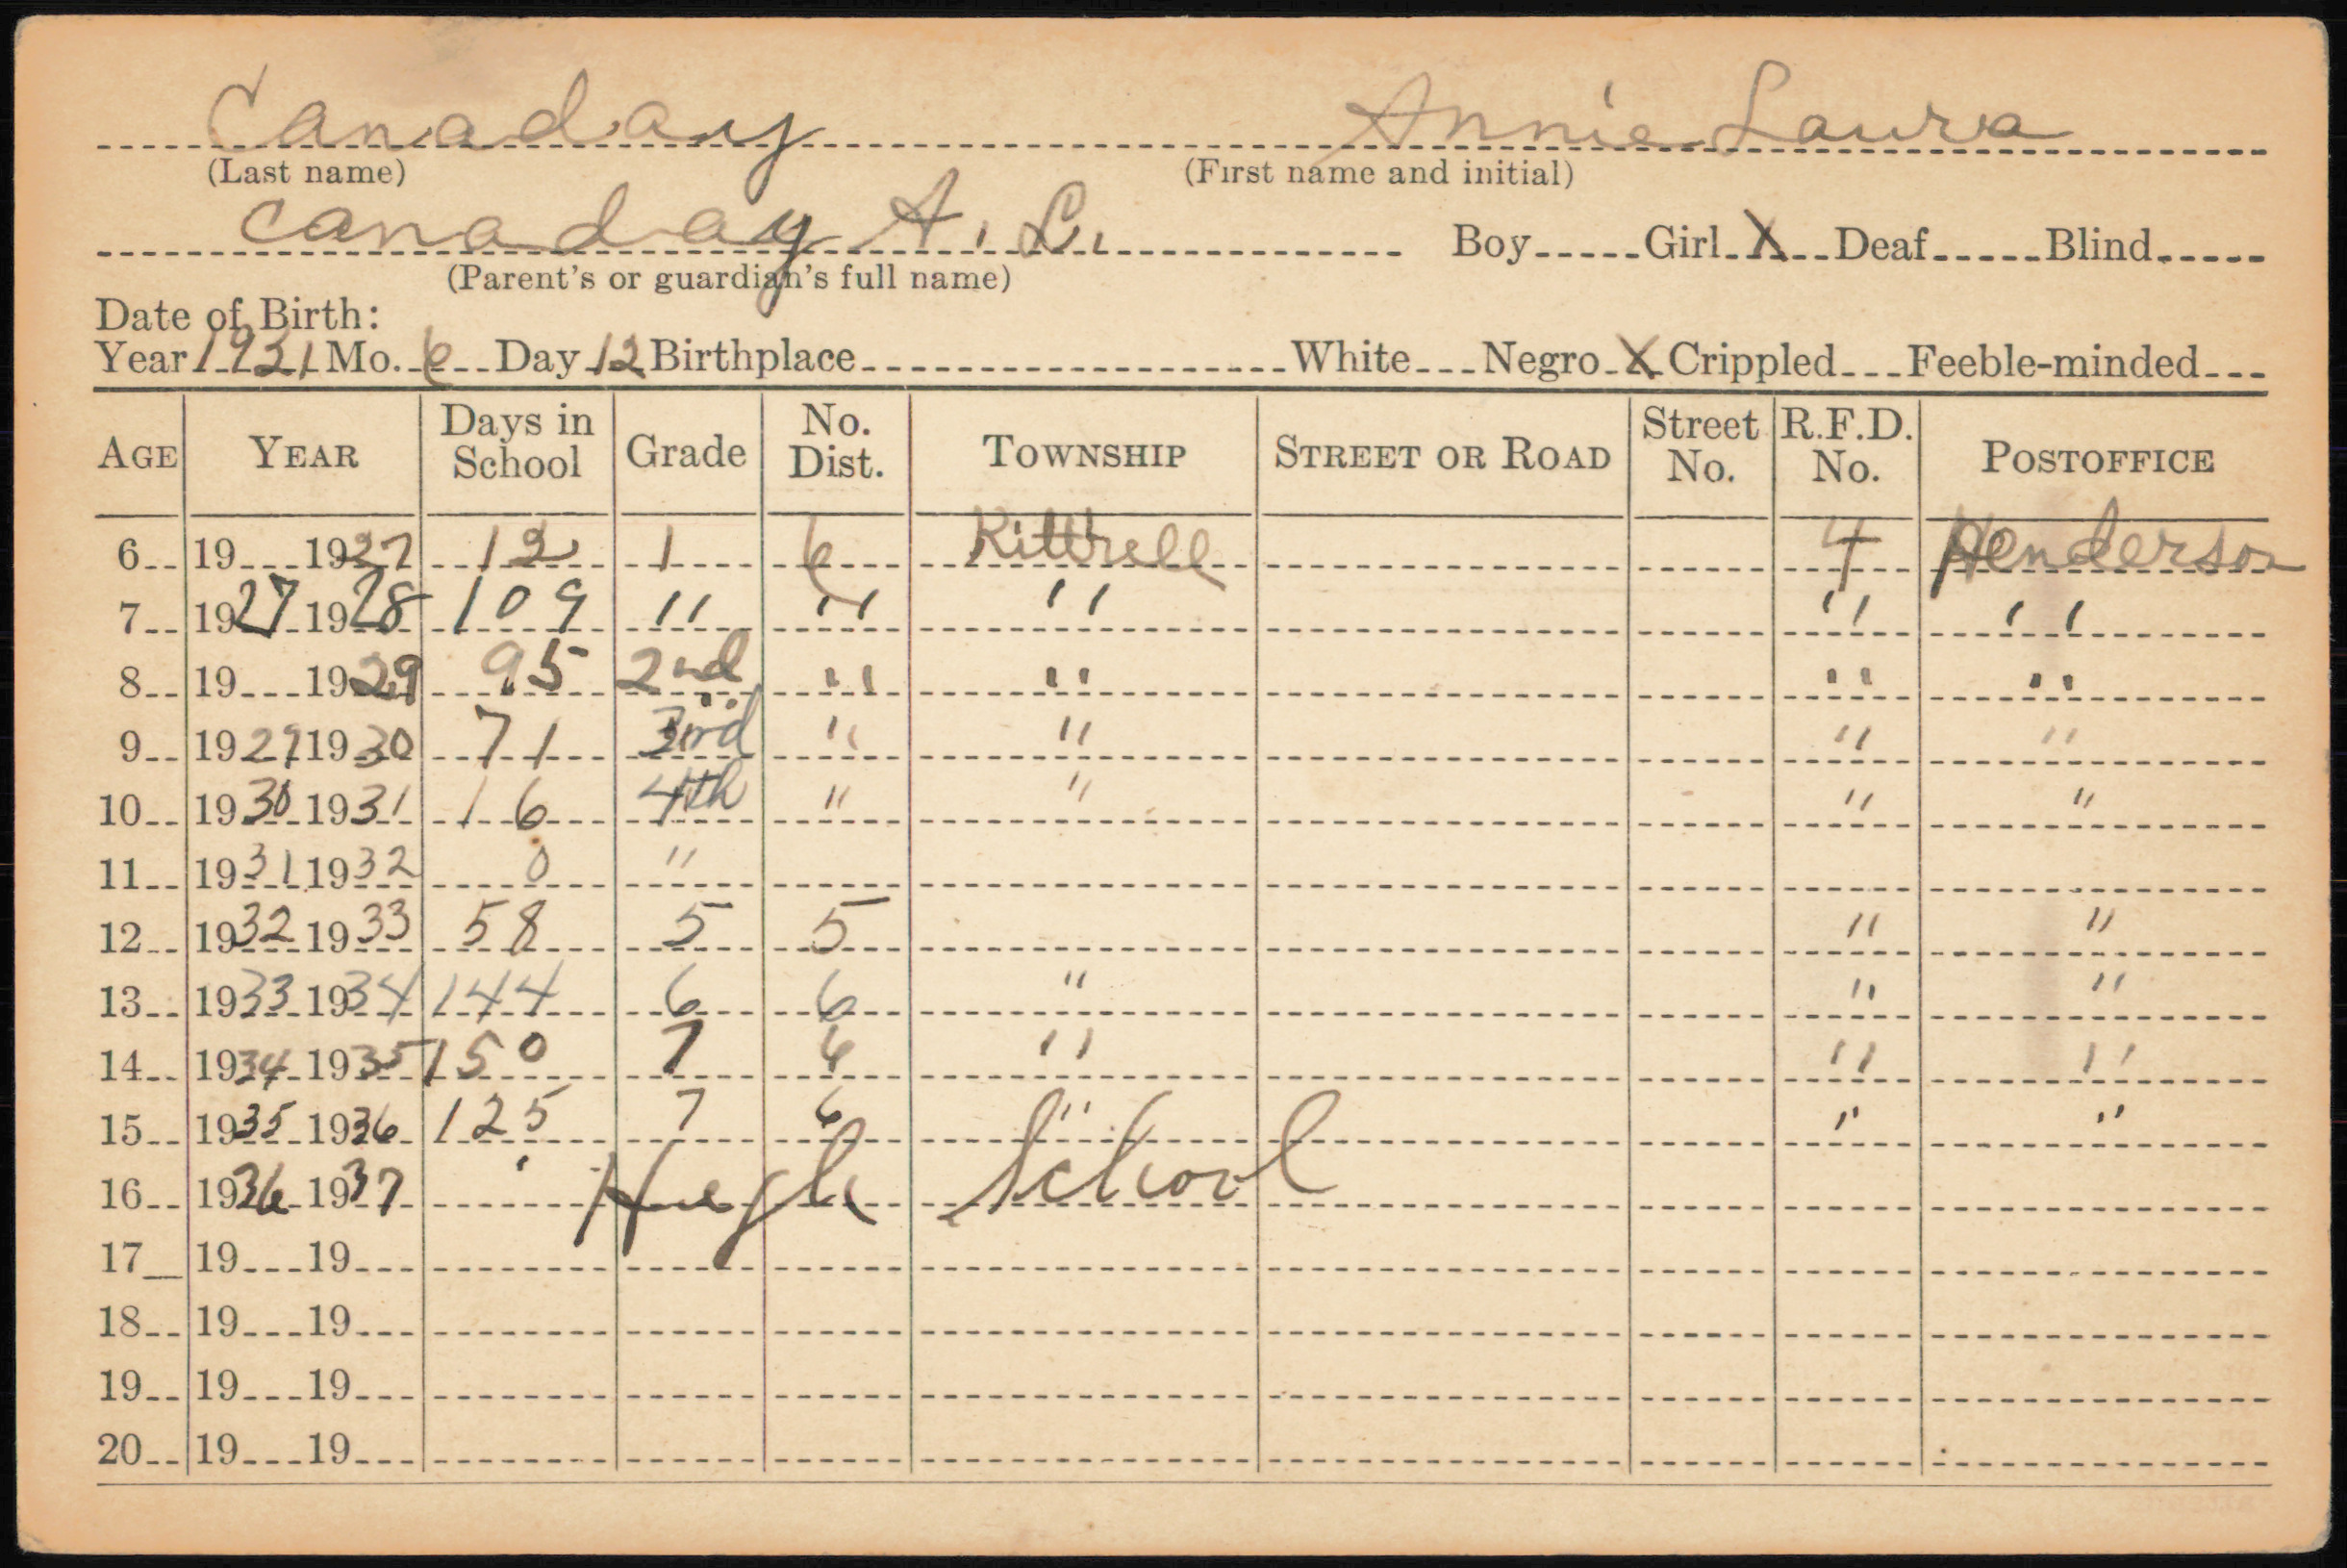 Canaday Annie Laura
(Last name) (First name and initial)
Canaday A. L. Boy Girl X Deaf Blind
(Parent's or guardian's full name)
Date of Birth:
Year 1921 Mo. 6 Day 12 Birthplace White Negro X Crippled Feeble-minded
AGE YEAR Days in School Grade No. Dist. TOWNSHIP STREET OR ROAD Street No. R.F.D. No. POSTOFFICE
6 19 1927 12 1 6 Kittrell 4 Henderson
7 1927 1928 109 " " " " "
8 19 1929 95 2nd " " " "
9 1929 1930 71 3rd " " " "
10 1930 1931 16 4th " " " "
11 1931 1932 0 "
12 1932 1933 58 5 5 " "
13 1933 1934 144 6 6 " " "
14 1934 1935 150 7 6 " " "
15 1935 1936 125 7 6 " " "
16 1936 1937 High School
17 19 19
18 19 19
19 19 19
20 19 19